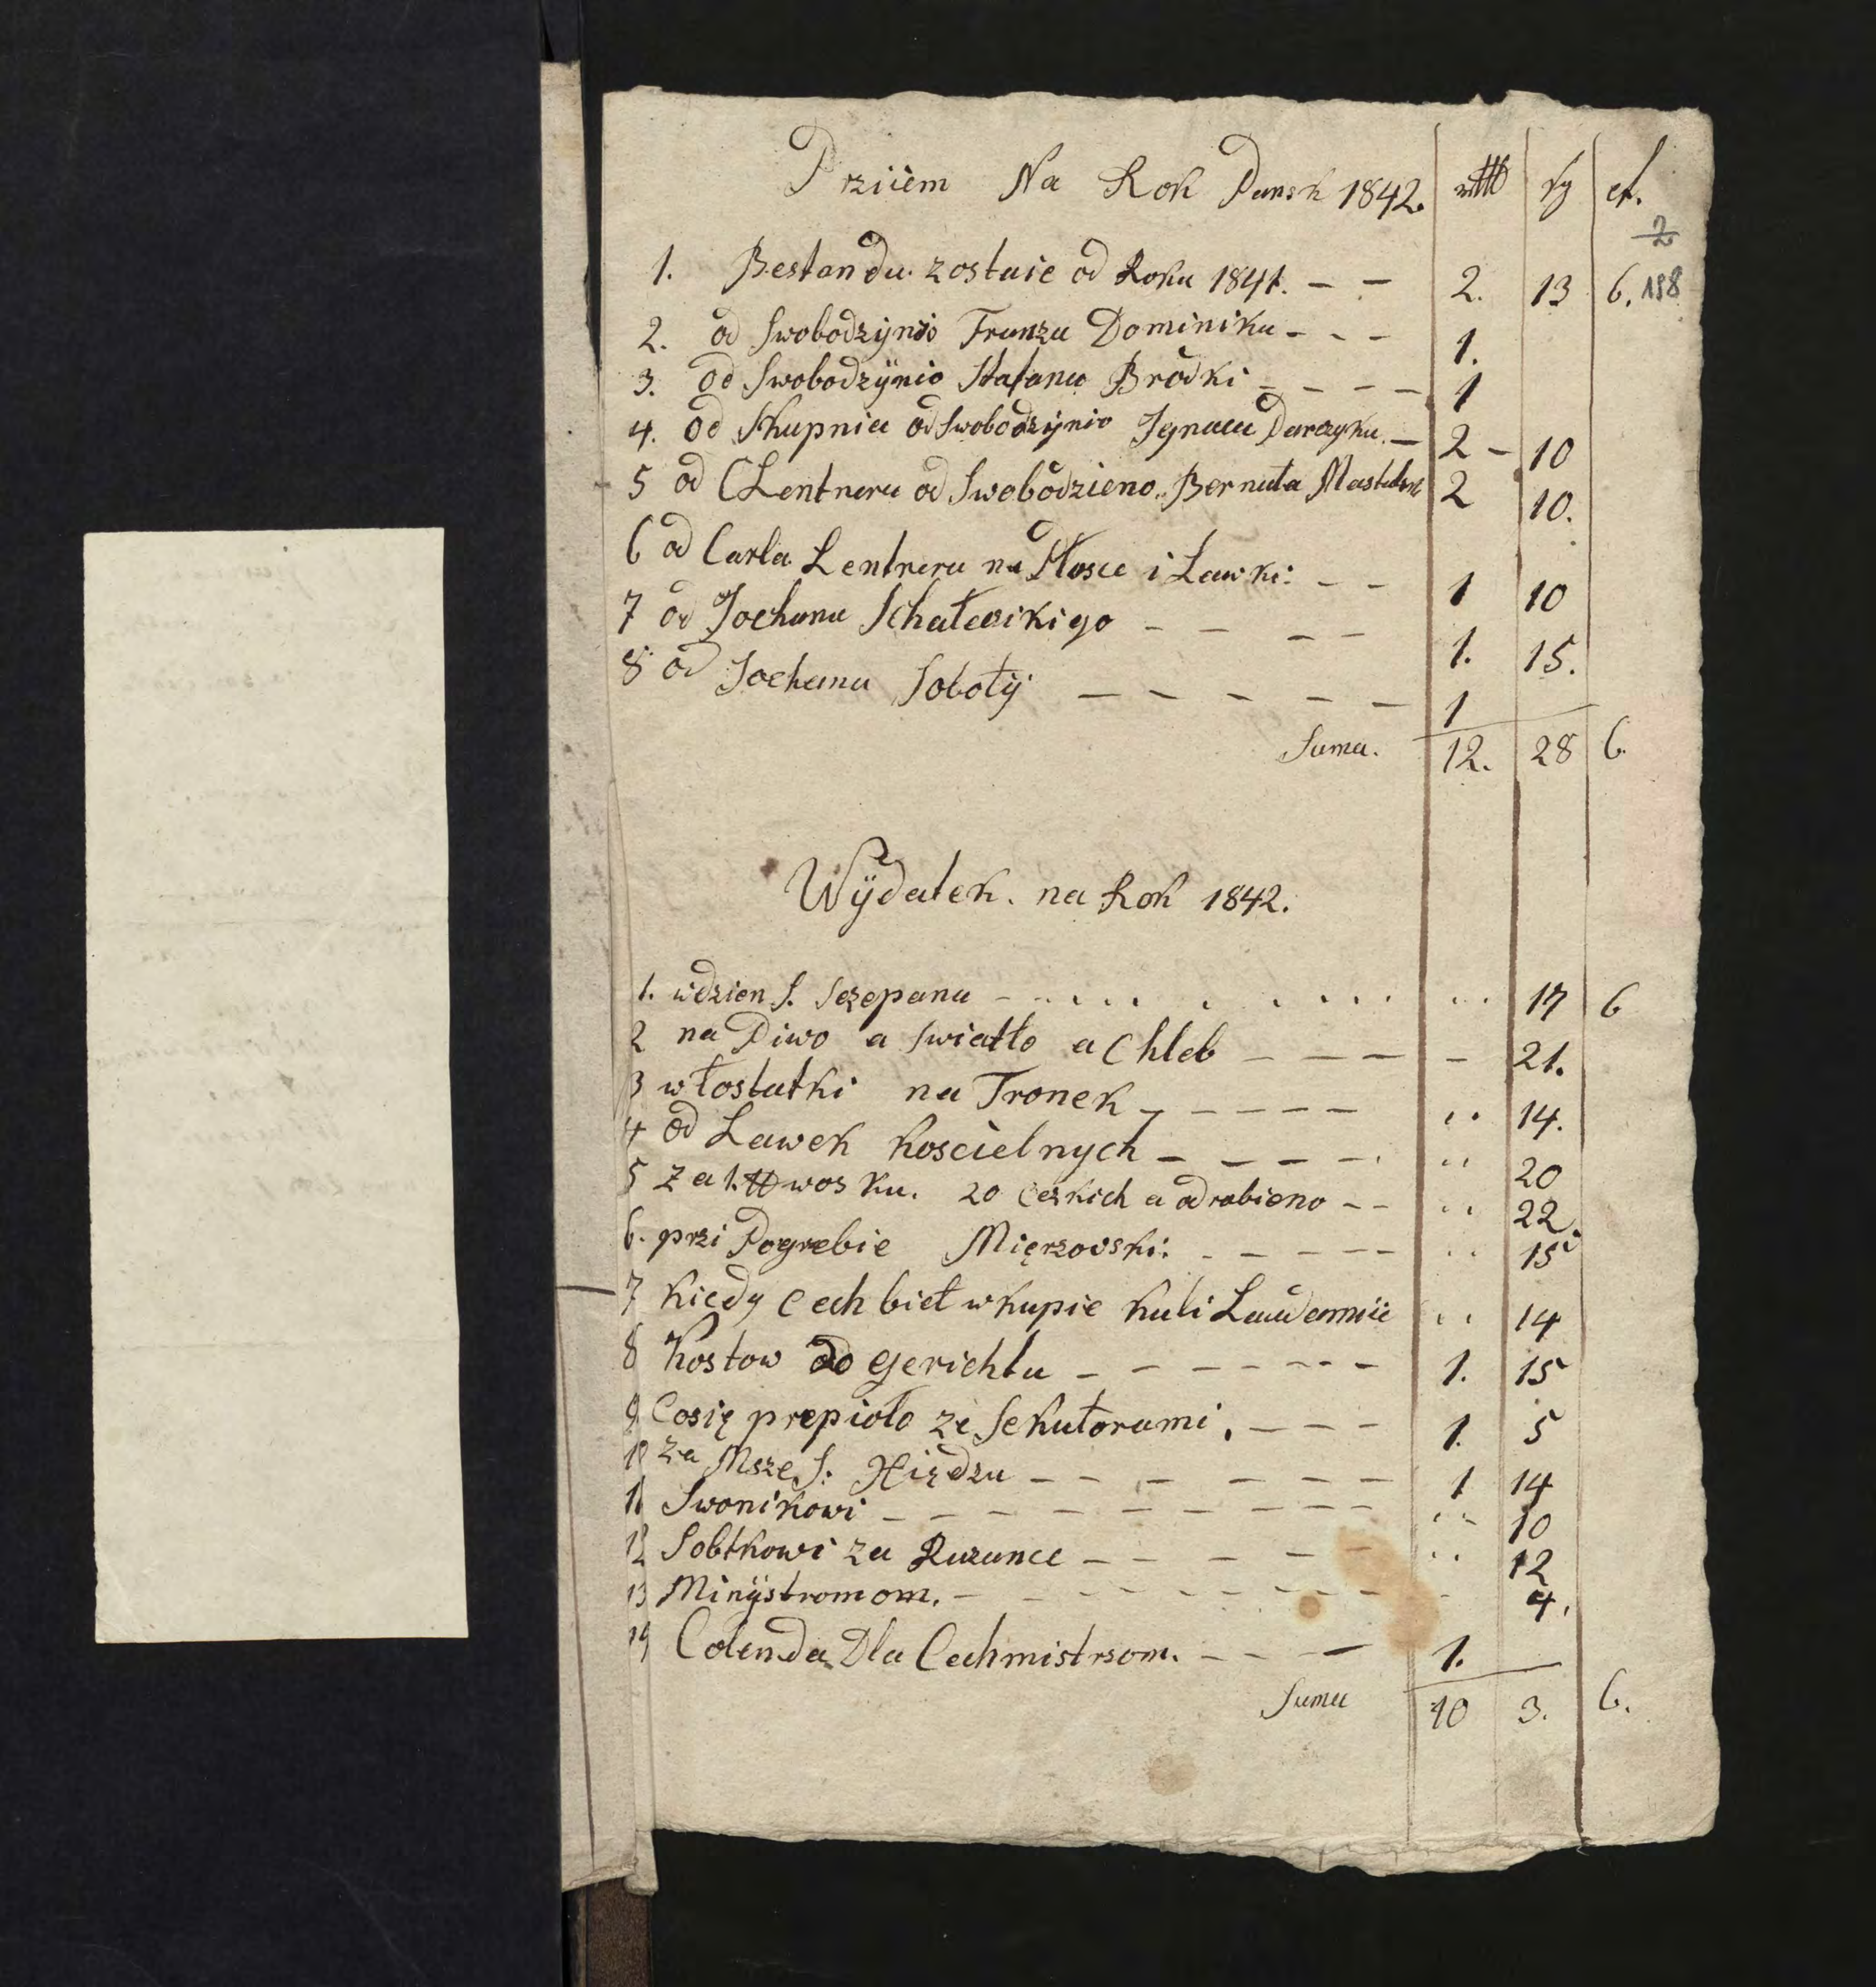 Prziiem Na Rok Pansk 1842. rttl sg d.
2
198
1. Bestandu zostaie od Roku 1841. - - 2. 13 6.
2. od Swobodzynio Franza Dominika - - - 1.
3. od Swobodzÿnio Stafana Brodki - - - - 1
4. od Skupnia od Swobodzÿnio Ignaca Darczyka. - 2 - 10
5 od CLentnera od Swobodzieno.. Bernata 2 10.
6 od Carla Lentnera na Mosce i Lawki: - - 1 10
7 od Jochana Schałecikigo - - - - 1. 15.
8 od Jochana Sobotÿ - - - - - 1
Suma. 12. 28 6.
Wÿdatek. na Rok 1842.
1. wdzien S. Sczepana - . . . . . . . . . . 17 6
2 na Piwo a swiatło a Chleb - - - - 21.
3 włostatki na Tronek - - - - - .. 14.
4 od Lawek koscielnych - - - - - .. 20
5 Za 1. ℔ wosku. 20 ceskich a odrobieno - - .. 22.
6. przi Pogrebie Mięrzovski: - - - - - .. 15
7 kiedy Cech bieł wkupie kuli Laudemiie .. 14
8 kostow do gerichtu - - - - - - - 1. 15
9 Cosię prepioło ze Sekutorami. - - - 1. 5
10 za Msze S: Xiędzu - - - - - - - 1 14
11 Swonikowi - - - - - - - - - .. 10
12 Sobtkowi za Ruzance - - - - - .. 12
13 Minÿstromom. - - - - - - - - 4.
14 Colenda Dla Cechmistrsom. - - - 1.
Suma 10 3. 6.